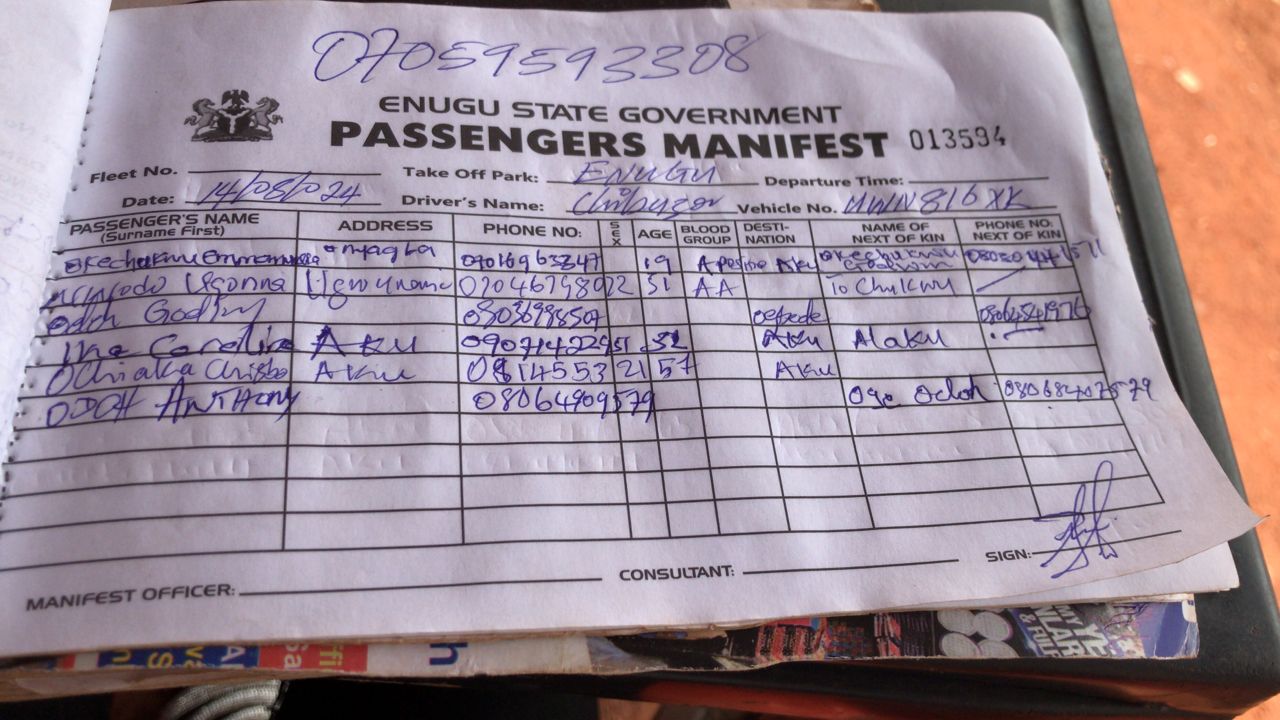 07059593308
ENUGU STATE GOVERNMENT
PASSENGERS MANIFEST 013594
Fleet No. Take Off Park: ENUGU Departure Time:
Date: 14/08/024 Driver's Name: Chibuzor Vehicle No. UWN816XK
PASSENGER'S NAME (Surname First) ADDRESS PHONE NO: SEX AGE BLOOD GROUP DESTI-NATION NAME OF NEXT OF KIN PHONE NO. NEXT OF KIN
Okechukwu Emmanuela 09016963247 19 Aku Okechukwu
Ugonna 07046798022 51 AA
Odoh Godfrey 08036998507 08064541976
Ike Caroline AKU 09071422951 52 AKU Alaku
Ochiaka AKU 08145532157 AKU
ODOH ANTHONY 08064909579 Oge Odoh 08068407579
MANIFEST OFFICER: CONSULTANT: SIGN: